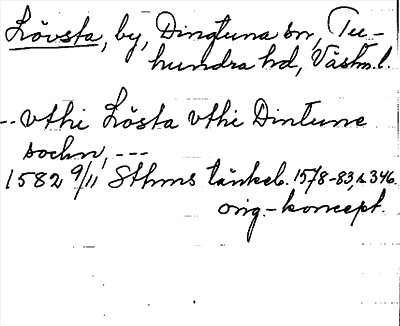 Lövsta, by, Dingtuna sn, Tu-
hundra hd, Västm.l.
-- vthi Lösta vthi Dintune
sochn, ---
1582 9/11 Sthms tänkeb. 1578-83, s. 346.
orig.-koncept.